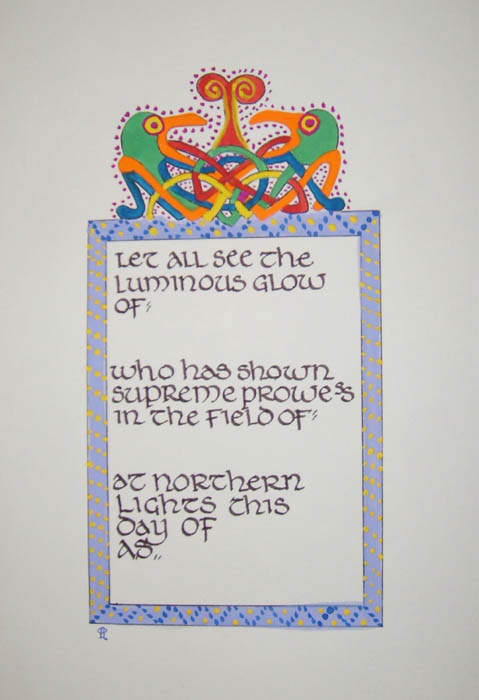 Let all see the
luminous glow
of"
who has shown
supreme prowess
in the field of"
at northern
lights this
day of
A.S.,,